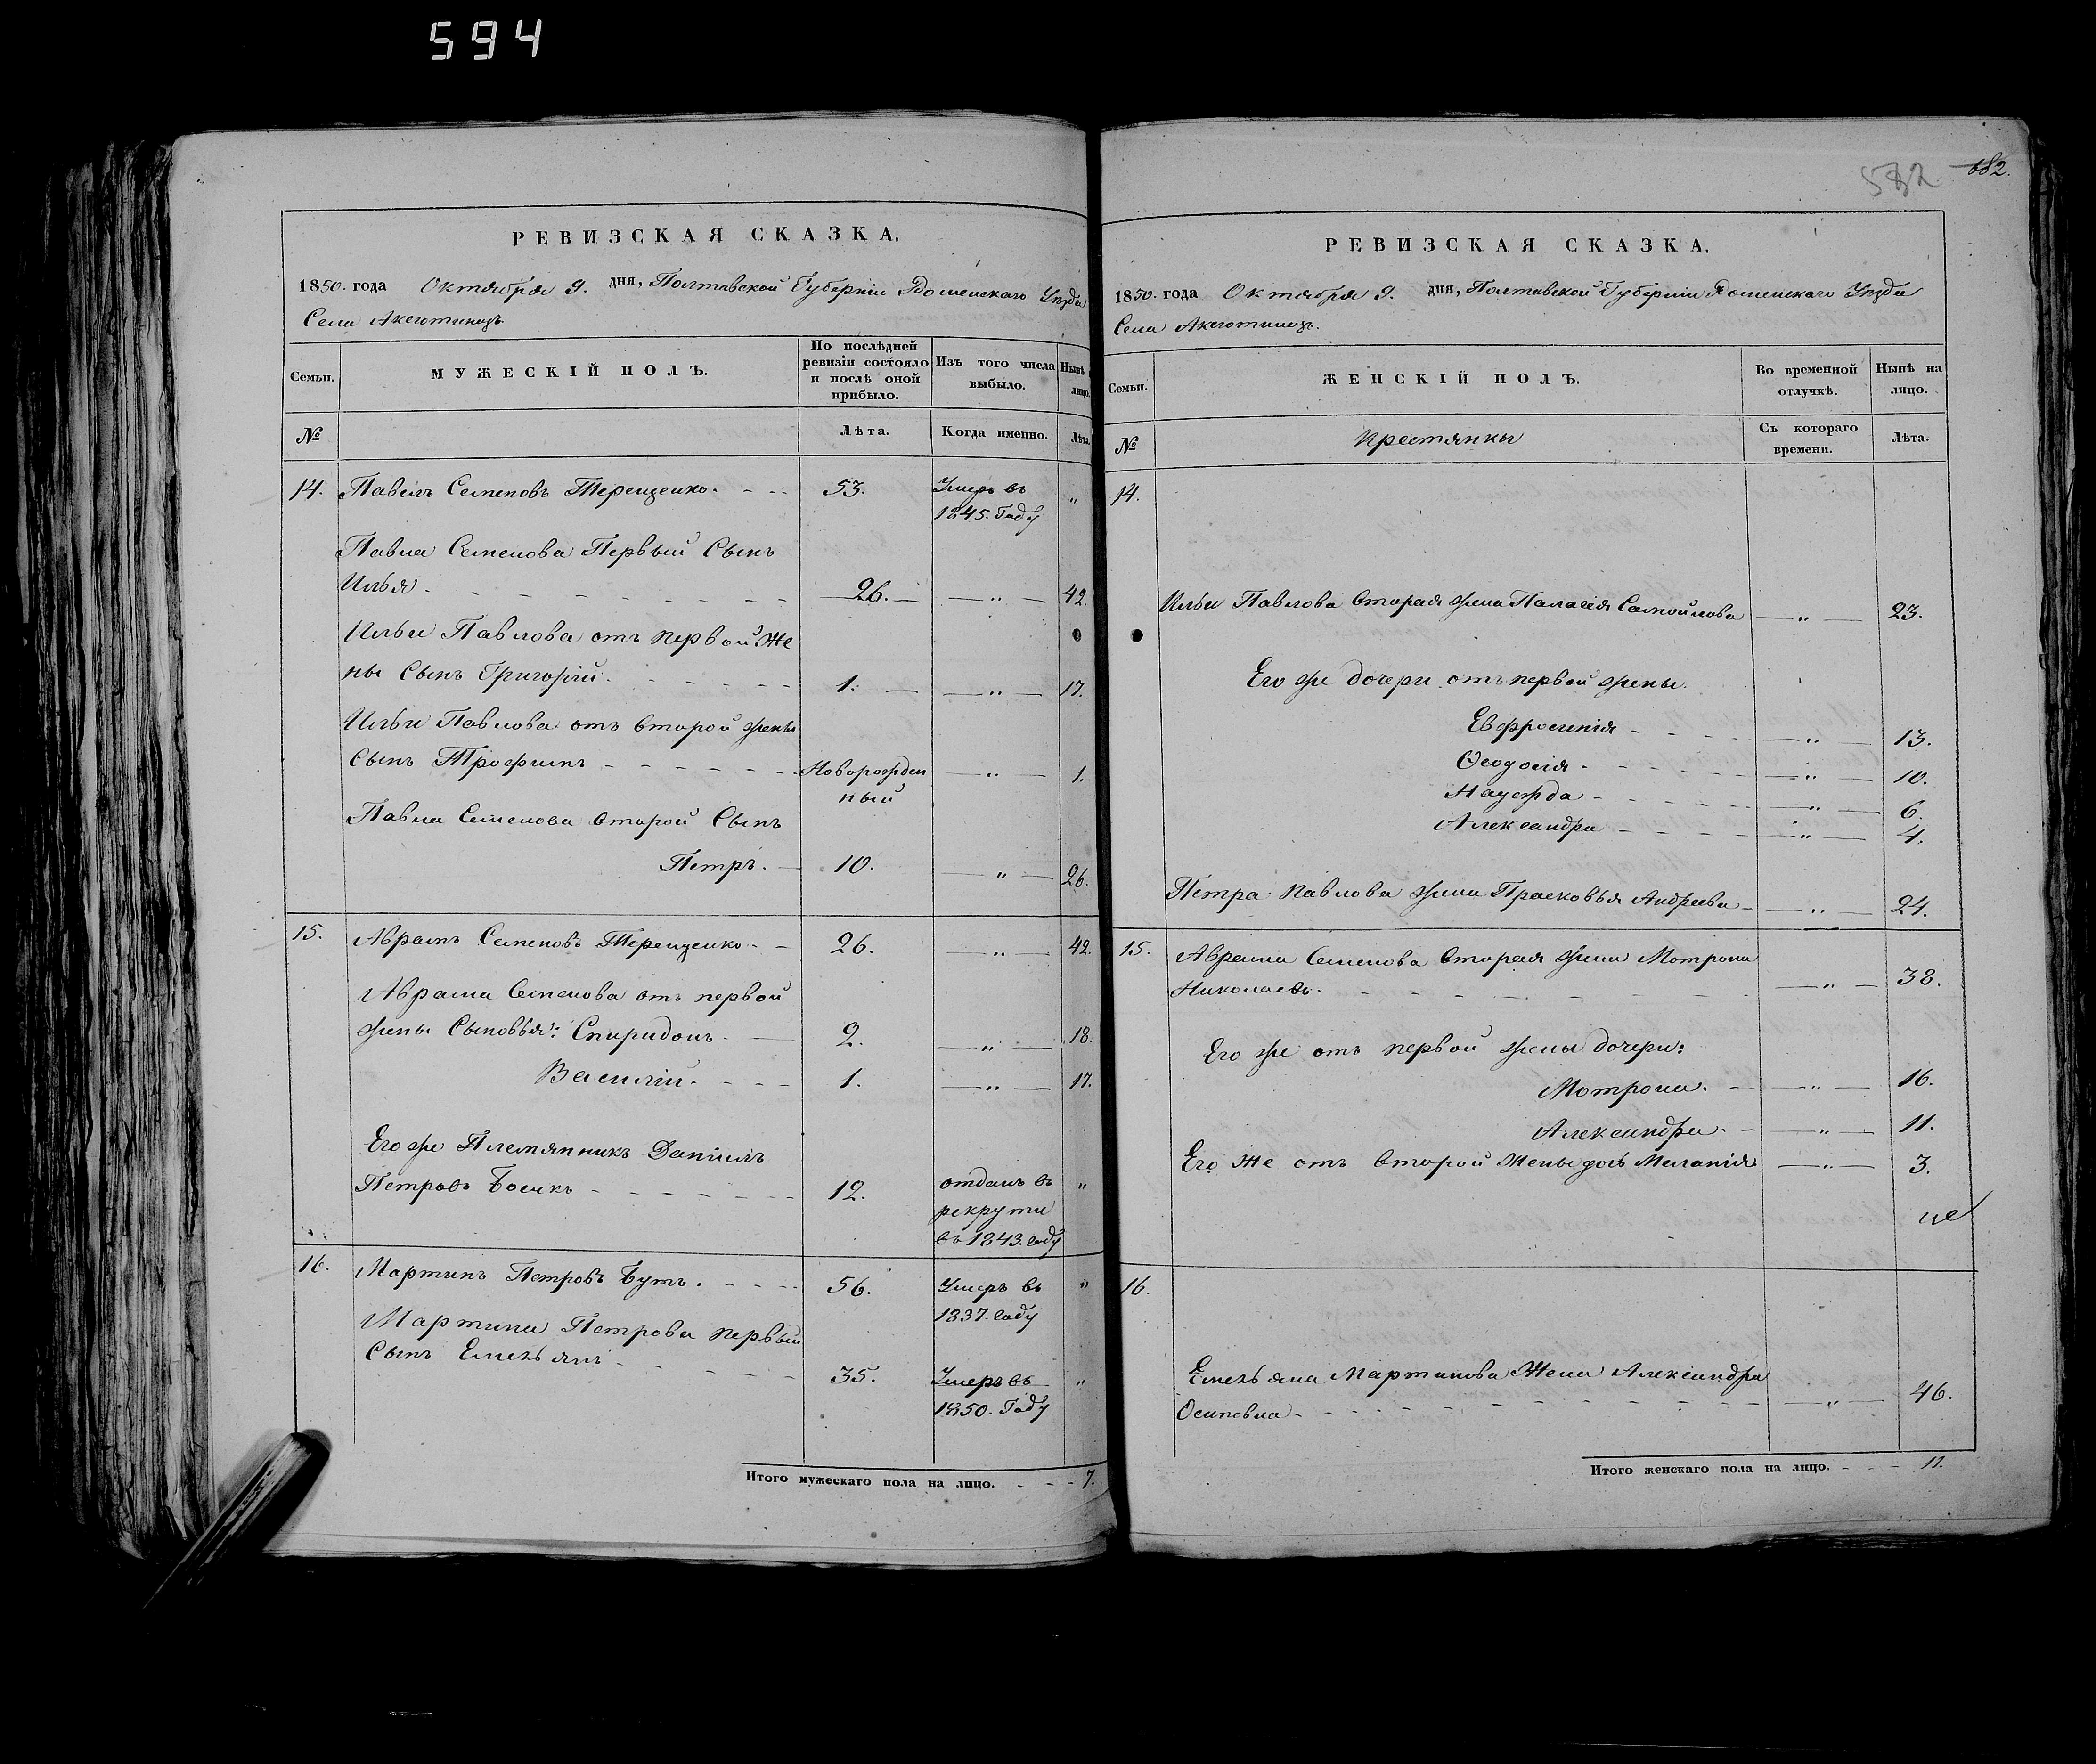 594
РЕВИЗСКАЯ СКАЗКА.
1850. года Октября 9. дня, Полтавской Губернии Роменскаго Уѣзда
Села Аксютинецъ
Семьи.
МУЖЕСКІЙ ПОЛЪ.
По послѣдней ревизіи состояло и послѣ оной прибыло.
Изъ того числа выбыло.
Нынѣ лицо.
№
Лѣта.
Когда именно.
Лѣта.
14. Павелъ Семеновъ Терещенко. - - - 53. Умеръ въ "
1845. Году
Павла Семенова Первый Сынъ
Илья. - - - 26. — " — 42.
Ильи Павлова отъ первой Же
ны Сынъ Григорій. - - - 1. — " — 17.
Ильи Павлова отъ второй жены
Сынъ Трофимъ - - - Новорожден — " — 1.
ный
Павла Семенова второй Сынъ
Петръ. — 10. — " — 26.
15. Абрамъ Семеновъ Терещенко - - 26. — " — 42.
Абрама Семенова отъ первой
жены Сыновья: Спиридонъ. — 2. — " — 18.
Василій. - - - 1. — " — 17.
Его же Племянникъ Даніилъ
Петровъ - - - 12. отданъ въ "
рекруты
въ 1843. году
16. Мартинъ Петровъ Бутъ. - - - 56. Умеръ въ "
1837. году
Мартина Петрова первый
Сынъ Емельянъ - - - 35. Умеръ въ "
1850. Году
Итого мужескаго пола на лицо. - - - 7.
582 682.
РЕВИЗСКАЯ СКАЗКА.
1850. года Октября 9. дня, Полтавской Губернии Роменскаго Уѣзда
Села Аксютинецъ.
Семьи.
ЖЕНСКІЙ ПОЛЪ.
Во временной отлучкѣ.
Нынѣ на лицо.
№
Крестянки
Съ котораго времени.
Лѣта.
14.
Ильи Павлова вторая жена Палагія Самойлова — " — 23.
Его же дочери отъ первой жены.
Евфросинія - - - — " — 13.
Ѳеодосія - - - — " — 10.
Надежда - - - — " — 6.
Александра - - - — " — 4.
Петра Павлова жена Прасковья Андреева — " — 24.
15. Абрама Семенова вторая жена Мотрона
Николаева. - - - — " — 38.
Его же отъ первой жены дочери:
Мотрона. - — " — 16.
Александра. - — " — 11.
Его же отъ второй жены дочь Меланія — " — 3.
16.
Емельяна Мартинова Жена Александра
Осиповна - - - — " — 46.
Итого женскаго пола на лицо. - - - 11.